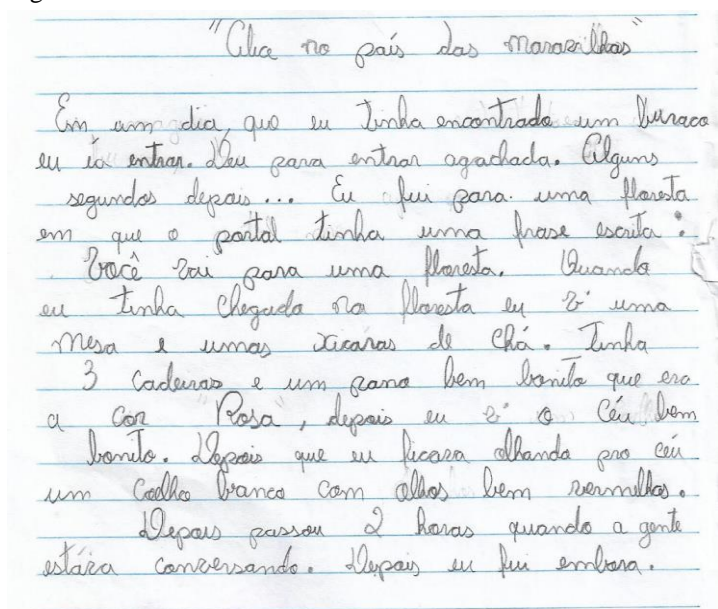 "Alice no país das maravilhas"
Em um dia, que eu tinha encontrado um buraco
eu ia entrar. Deu para entrar agachada. Alguns
segundos depois... Eu fui para uma floresta
em que o portal tinha uma frase escrita :
Você vai para uma floresta. Quando
eu tinha chegado na floresta eu vi uma
mesa e umas xicaras de chá. Tinha
3 cadeiras e um pano bem bonito que era
a cor "Rosa", depois eu vi o céu bem
bonito. Depois que eu ficava olhando pro céu
um coelho branco com olhos bem vermelhos.
Depois passou 2 horas quando a gente
estáva conversando. Depois eu fui embora.